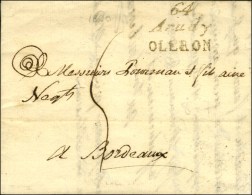 64
Arudy
OLERON
A Messieurs Promenau & fils ainé
Negts
5
a Bordeaux